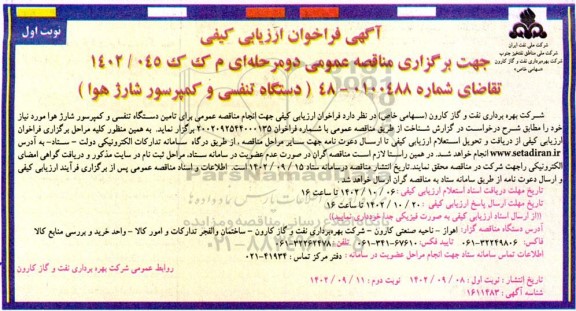 نوبت اول
شرکت ملی نفت ایران
شرکت ملی مناطق نفتخیز جنوب
شرکت بهره‌برداری نفت و گاز کارون
«سهامی خاص»
آگهی فراخوان ارزیابی کیفی
جهت برگزاری مناقصه عمومی دومرحله‌ای م ک ک ۰۴۵ / ۱۴۰۲
تقاضای شماره ۰۱۰۰۴۸۸ - ۴۸ ( دستگاه تنفسی و کمپرسور شارژ هوا )
شرکت بهره‌برداری نفت و گاز کارون (سهامی خاص) در نظر دارد فراخوان ارزیابی کیفی جهت انجام مناقصه عمومی برای تامین دستگاه تنفسی و کمپرسور شارژ هوا مورد نیاز
خود را مطابق شرح درخواست در گزارش شناخت از طریق مناقصه عمومی با شماره فراخوان ۲۰۰۲۰۹۲۵۴۴۰۰۰۱۳۵ برگزار نماید. به همین منظور کلیه مراحل برگزاری فراخوان
ارزیابی کیفی از دریافت و تحویل استعلام ارزیابی کیفی تا ارسال دعوت نامه جهت سایر مراحل مناقصه، از طریق درگاه سامانه تدارکات الکترونیکی دولت - ستاد- به آدرس
www.setadiran.ir انجام خواهد شد. در همین راستا لازم است مناقصه گران در صورت عدم عضویت در سامانه ستاد، مراحل ثبت نام در سایت مذکور و دریافت گواهی امضای
الکترونیکی جهت شرکت در مناقصه محقق نمایند.تاریخ انتشار مناقصه در سامانه ستاد ۱۵ / ۰۹ / ۱۴۰۲ است. اطلاعات و اسناد مناقصه عمومی پس از برگزاری فرآیند ارزیابی کیفی
و ارسال دعوت نامه از طریق سامانه ستاد به مناقصه گران ارسال خواهد شد.
تاریخ مهلت دریافت اسناد استعلام ارزیابی کیفی : ۰۶ / ۱۰ / ۱۴۰۲ تا ساعت ۱۶
تاریخ مهلت ارسال پاسخ ارزیابی کیفی : ۲۰ / ۱۰ / ۱۴۰۲ تا ساعت ۱۶
((از ارسال اسناد ارزیابی کیفی به صورت فیزیکی جدا خودداری نمایید))
آدرس دستگاه مناقصه گزار: اهواز - ناحیه صنعتی کارون - شرکت بهره‌برداری نفت و گاز کارون - ساختمان والفجر تدارکات و امور کالا - واحد خرید و بررسی منابع کالا
فاکس: ۳۲۲۴۹۸۰۶-۰۶۱ تایید فکس: ۶۷۶۱۰-۳۴۱-۰۶۱ تلفن: ۳۲۲۶۲۴۷۸-۰۶۱
اطلاعات تماس سامانه ستاد جهت انجام مراحل عضویت در سامانه : دفتر مرکز تماس : ۴۱۹۳۴-۰۲۱
تاریخ انتشار : نوبت اول : ۰۸ / ۰۹ / ۱۴۰۲ نوبت دوم : ۱۱ / ۰۹ / ۱۴۰۲
شناسه آگهی : ۱۶۱۱۴۸۳
روابط عمومی شرکت بهره برداری نفت و گاز کارون